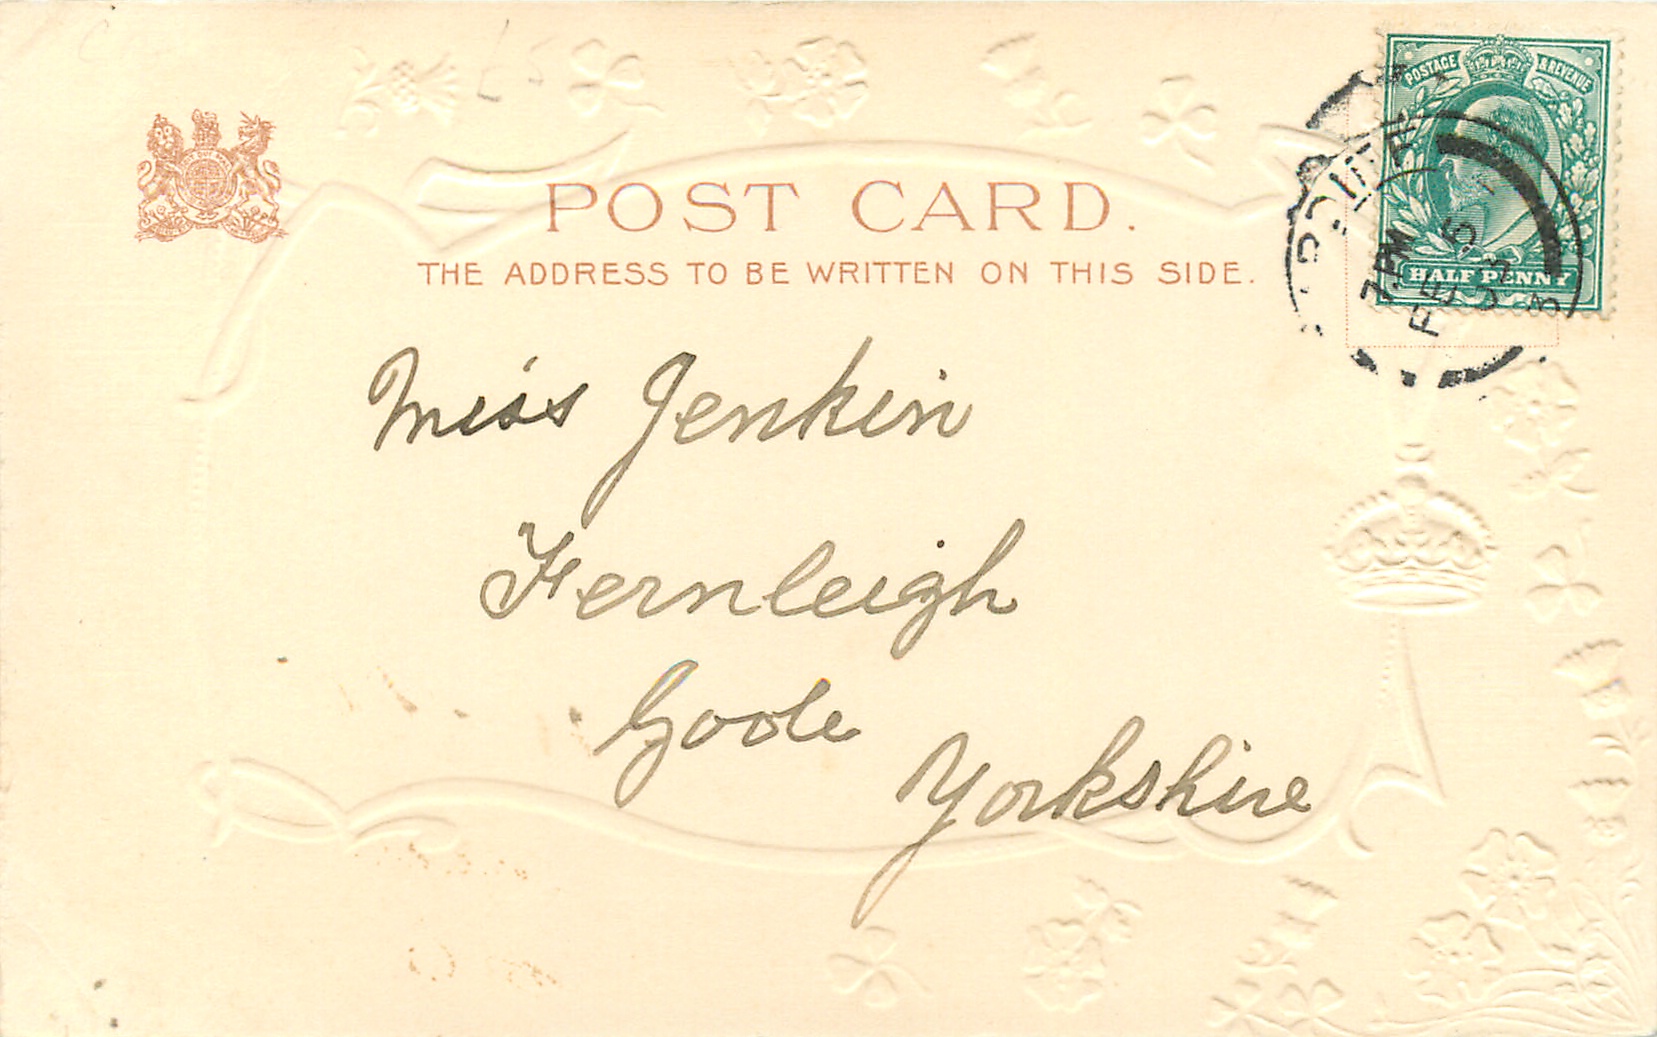 POST CARD.
THE ADDRESS TO BE WRITTEN ON THIS SIDE.
POSTAGE & REVENUE
HALF PENNY
7 PM
FE 5
Miss Jenkin
Fernleigh
Goole
Yorkshire